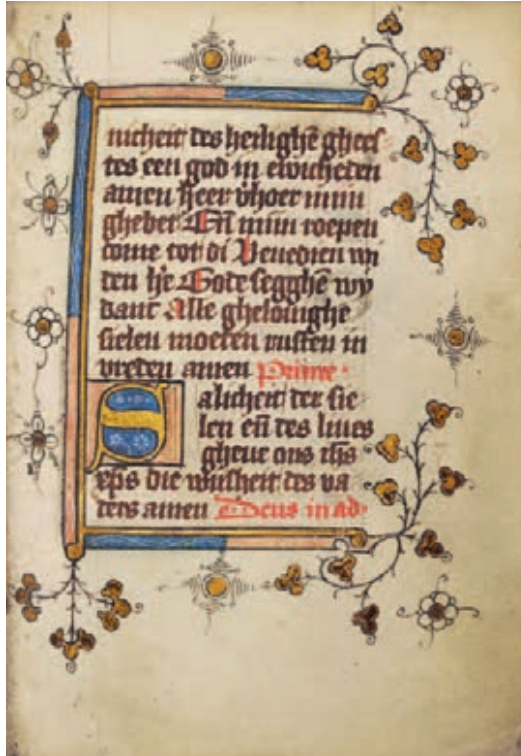 nicheit des heilighē ghees
tes een god in ewicheden
amen Heer v̄hoer mijn
ghebet Eñ mijn roepen
come tot di Benedien wi
den h̄e Gode segghē wy
danc Alle ghelouighe
sielen moeten rusten in
vreden amen Prime
Salicheit der sie
len eñ des liues
gheue ons ih̄s
xp̄s die wijsheit des va
ders amen Deus in ad